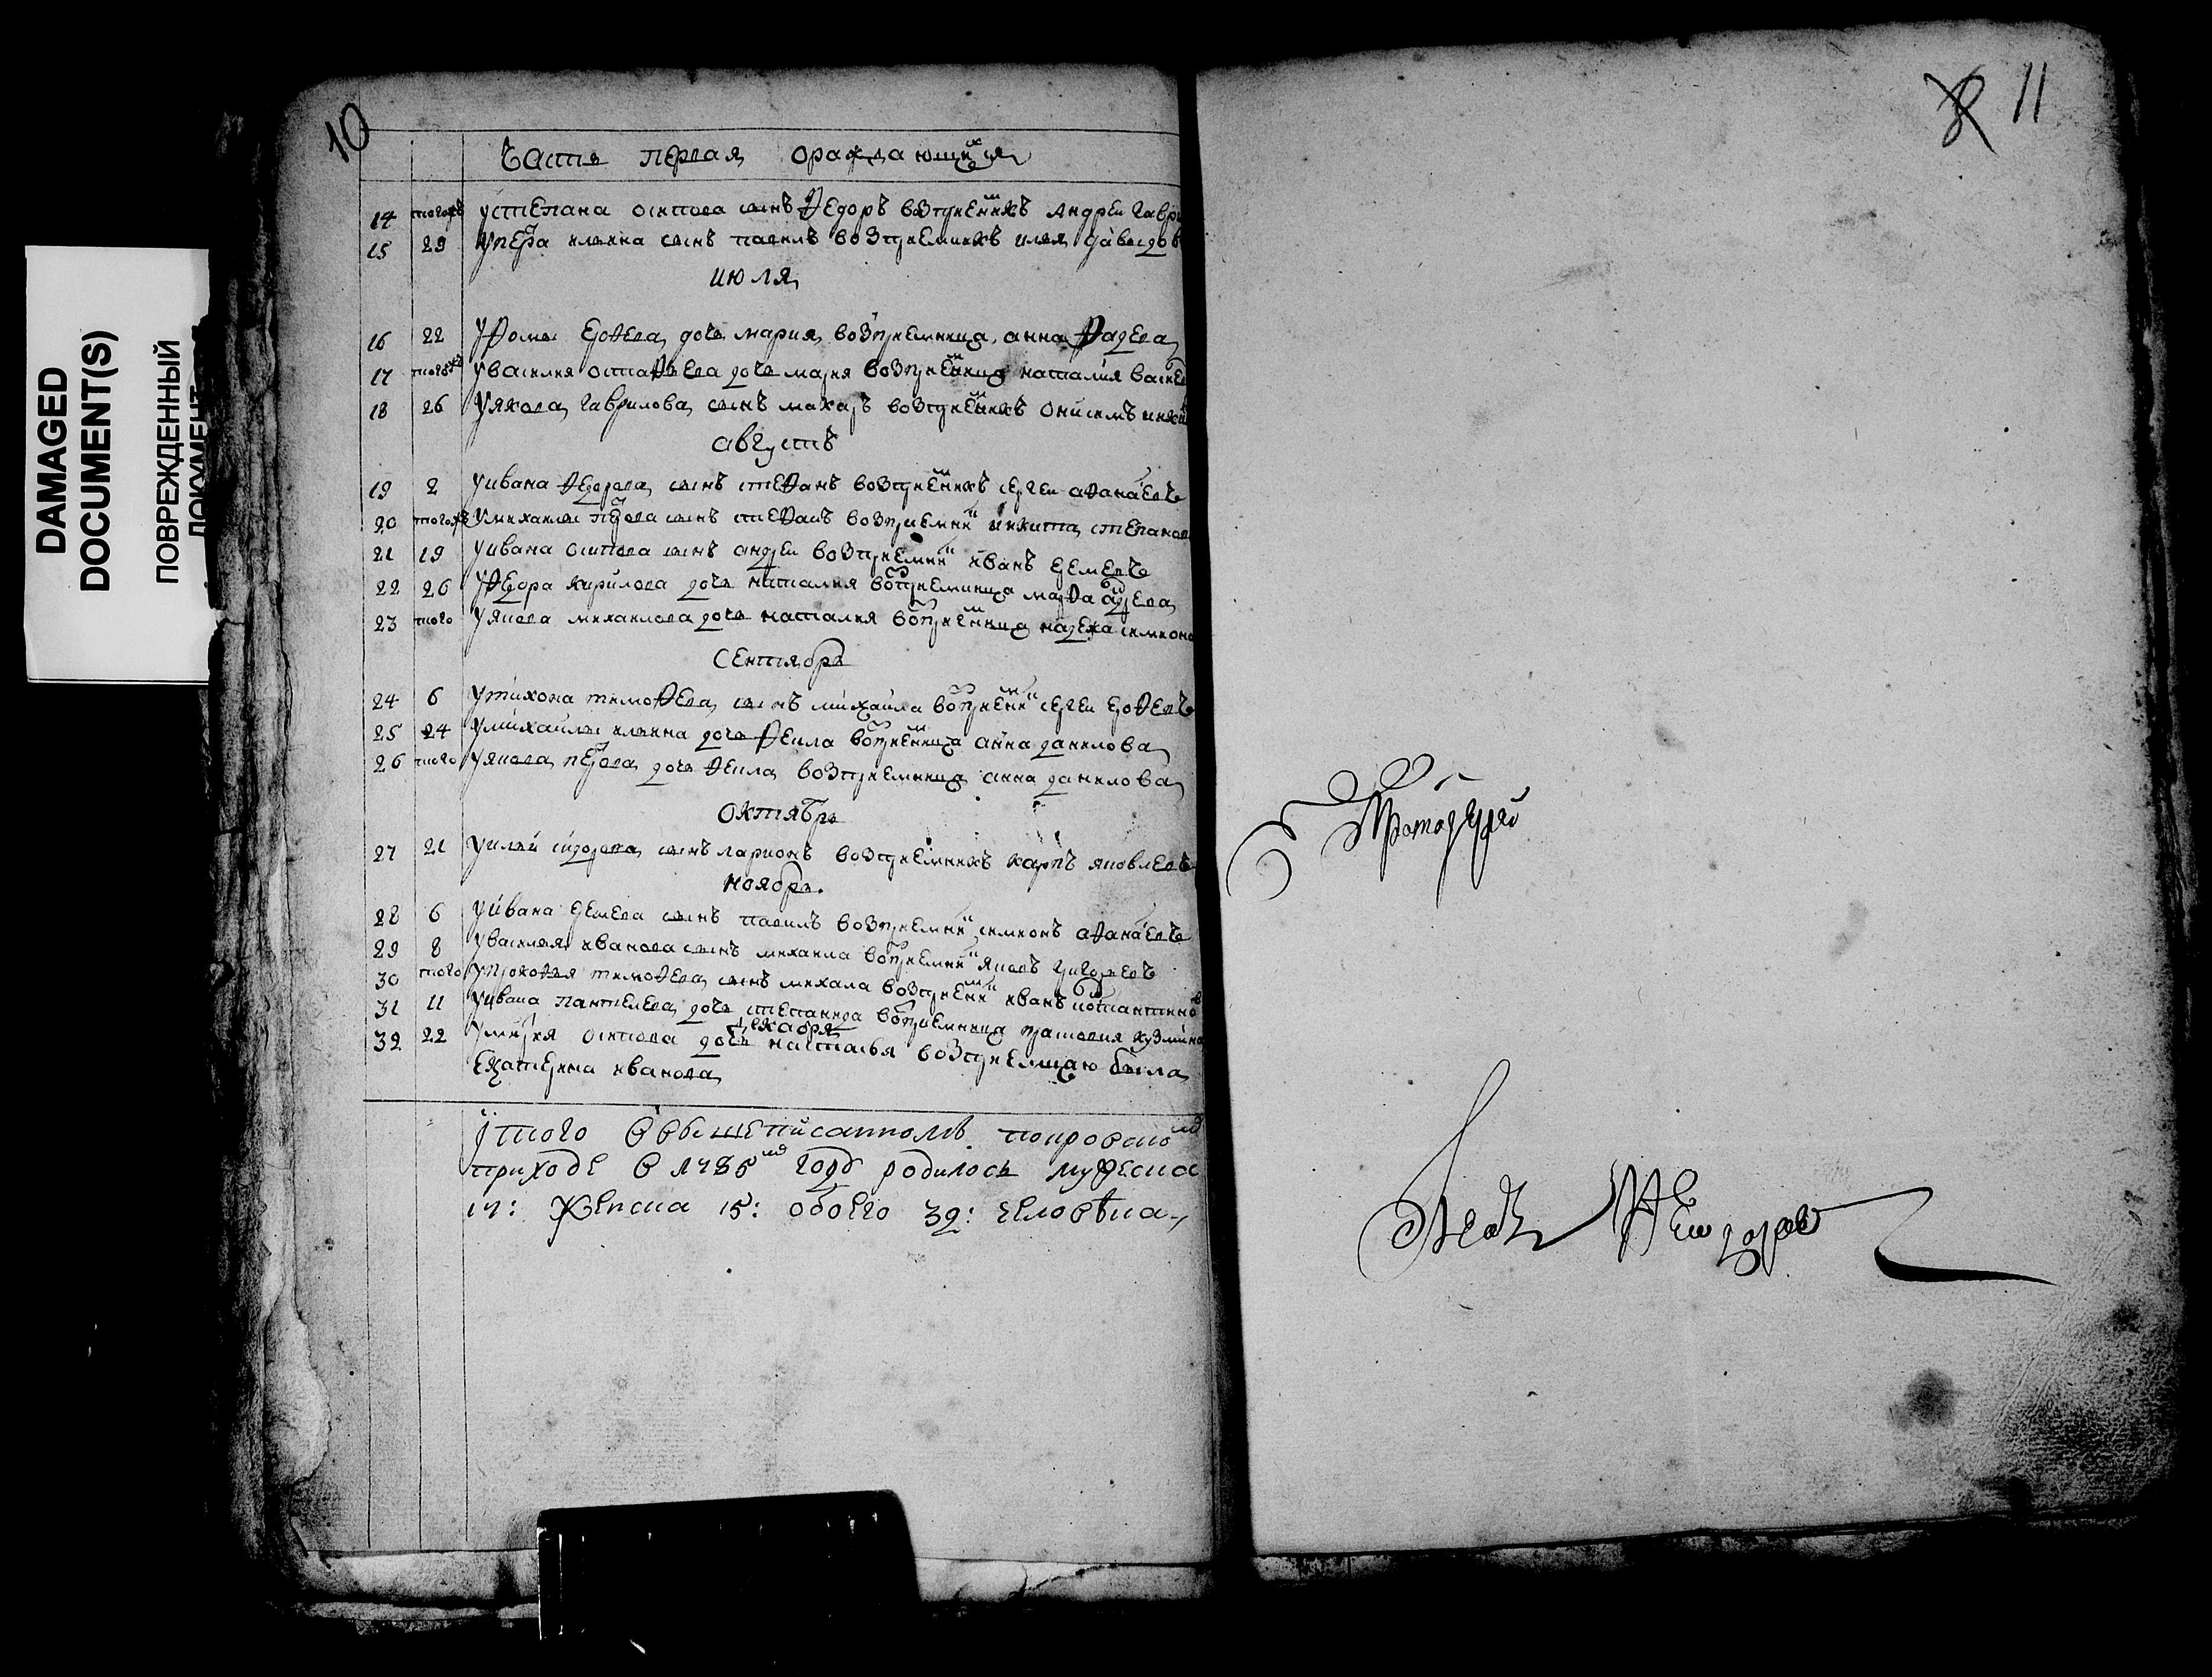 DAMAGED
DOCUMENT(S)
ПОВРЕЖДЕННЫЙ
ДОКУМЕНТ
10
11
Часть первая ораждающихся
14 тогожъ устепана осипова сынъ Ѳедоръ возприемникъ Андреи Гаври
15 29 упетра ильина сынъ павилъ возприемникъ илья давыдов
июля
16 22 уѲомы ерѲева дочь мария возприемница анна Ѳадева
17 тогожъ уваселия остаѲьева дочь мария возприемница наталия Васил
18 26 уякова гаврилова сынъ макаръ возприемникъ онисимъ
августъ
19 2 уивана Ѳедорова сынъ стеѲанъ возприемникъ сергеи аѲанасевъ
20 тогожъ умихаилы петрова сынъ стеѲанъ возприемни никита степанов
21 19 уивана осипова сынъ андреи возприемни иванъ еремеевъ
22 26 уѲедора кирилова дочь наталия воприемница марѲа андрева
23 того уякова михаилова дочь наталия воприемница надежа семионо
Сентябрь
24 6 утихона тимоѲева сынъ михайла воприемни сергеи ероѲевъ
25 24 умихайлы ильина дочь Ѳекла воприемница анна данилова
26 того уякова петрова дочь Ѳекла возприемница анна данилова
Октябрь
27 21 уильи сидорова сынъ ларионъ возприемникъ карпъ яковлевъ
ноябрь.
28 6 уивана еремева сынъ павилъ возприемни семионъ аѲанасевъ
29 8 уваселья иванова сынъ михаила воприемни яковъ григоревъ
30 того упрокоѲья тимоѲева сынъ михала возприемни иванъ
31 11 уивана пантелева дочь степанида воприемница прасковия кузмина
декабря
32 22 осипова дочь настасья возприемницаю была
екатерина иванова
итого ввышеписанномъ покровском
приходе в 1786м году родилось мужеска
17: женска 15: обоего 32: человека